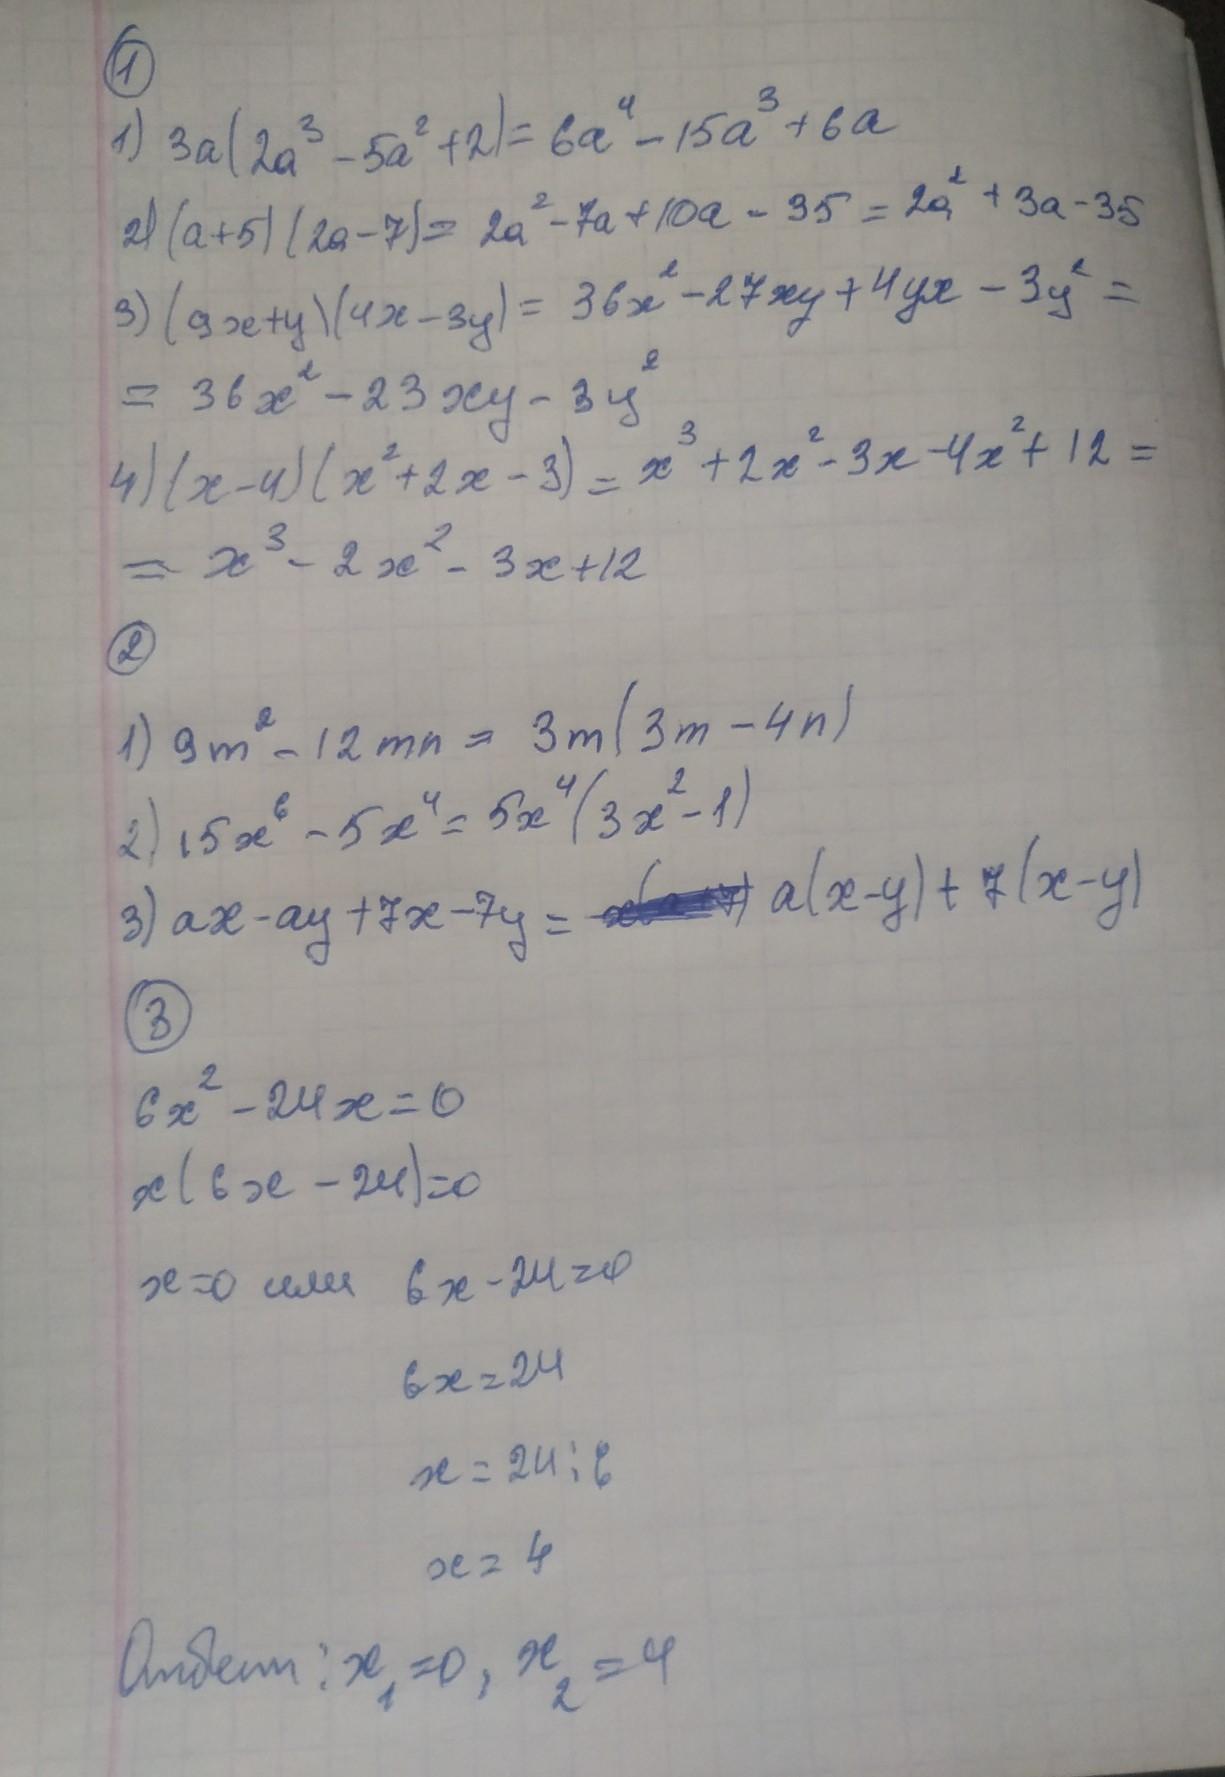 1
1) 3a(2a³ - 5a² + 2) = 6a⁴ - 15a³ + 6a
2) (a+5)(2a-7) = 2a² - 7a + 10a - 35 = 2a² + 3a - 35
3) (9x+y)(4x-3y) = 36x² - 27xy + 4yx - 3y² =
= 36x² - 23xy - 3y²
4) (x-4)(x² + 2x - 3) = x³ + 2x² - 3x - 4x² + 12 =
= x³ - 2x² - 3x + 12
2
1) 9m² - 12mn = 3m(3m - 4n)
2) 15x⁶ - 5x⁴ = 5x⁴(3x² - 1)
3) ax - ay + 7x - 7y = a(x-y) + 7(x-y)
3
6x² - 24x = 0
x(6x - 24) = 0
x=0 или 6x - 24 = 0
6x = 24
x = 24:6
x = 4
Ответ: x₁ = 0, x₂ = 4